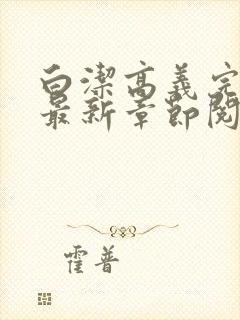 白潔高義完
最新章節閱
霍普